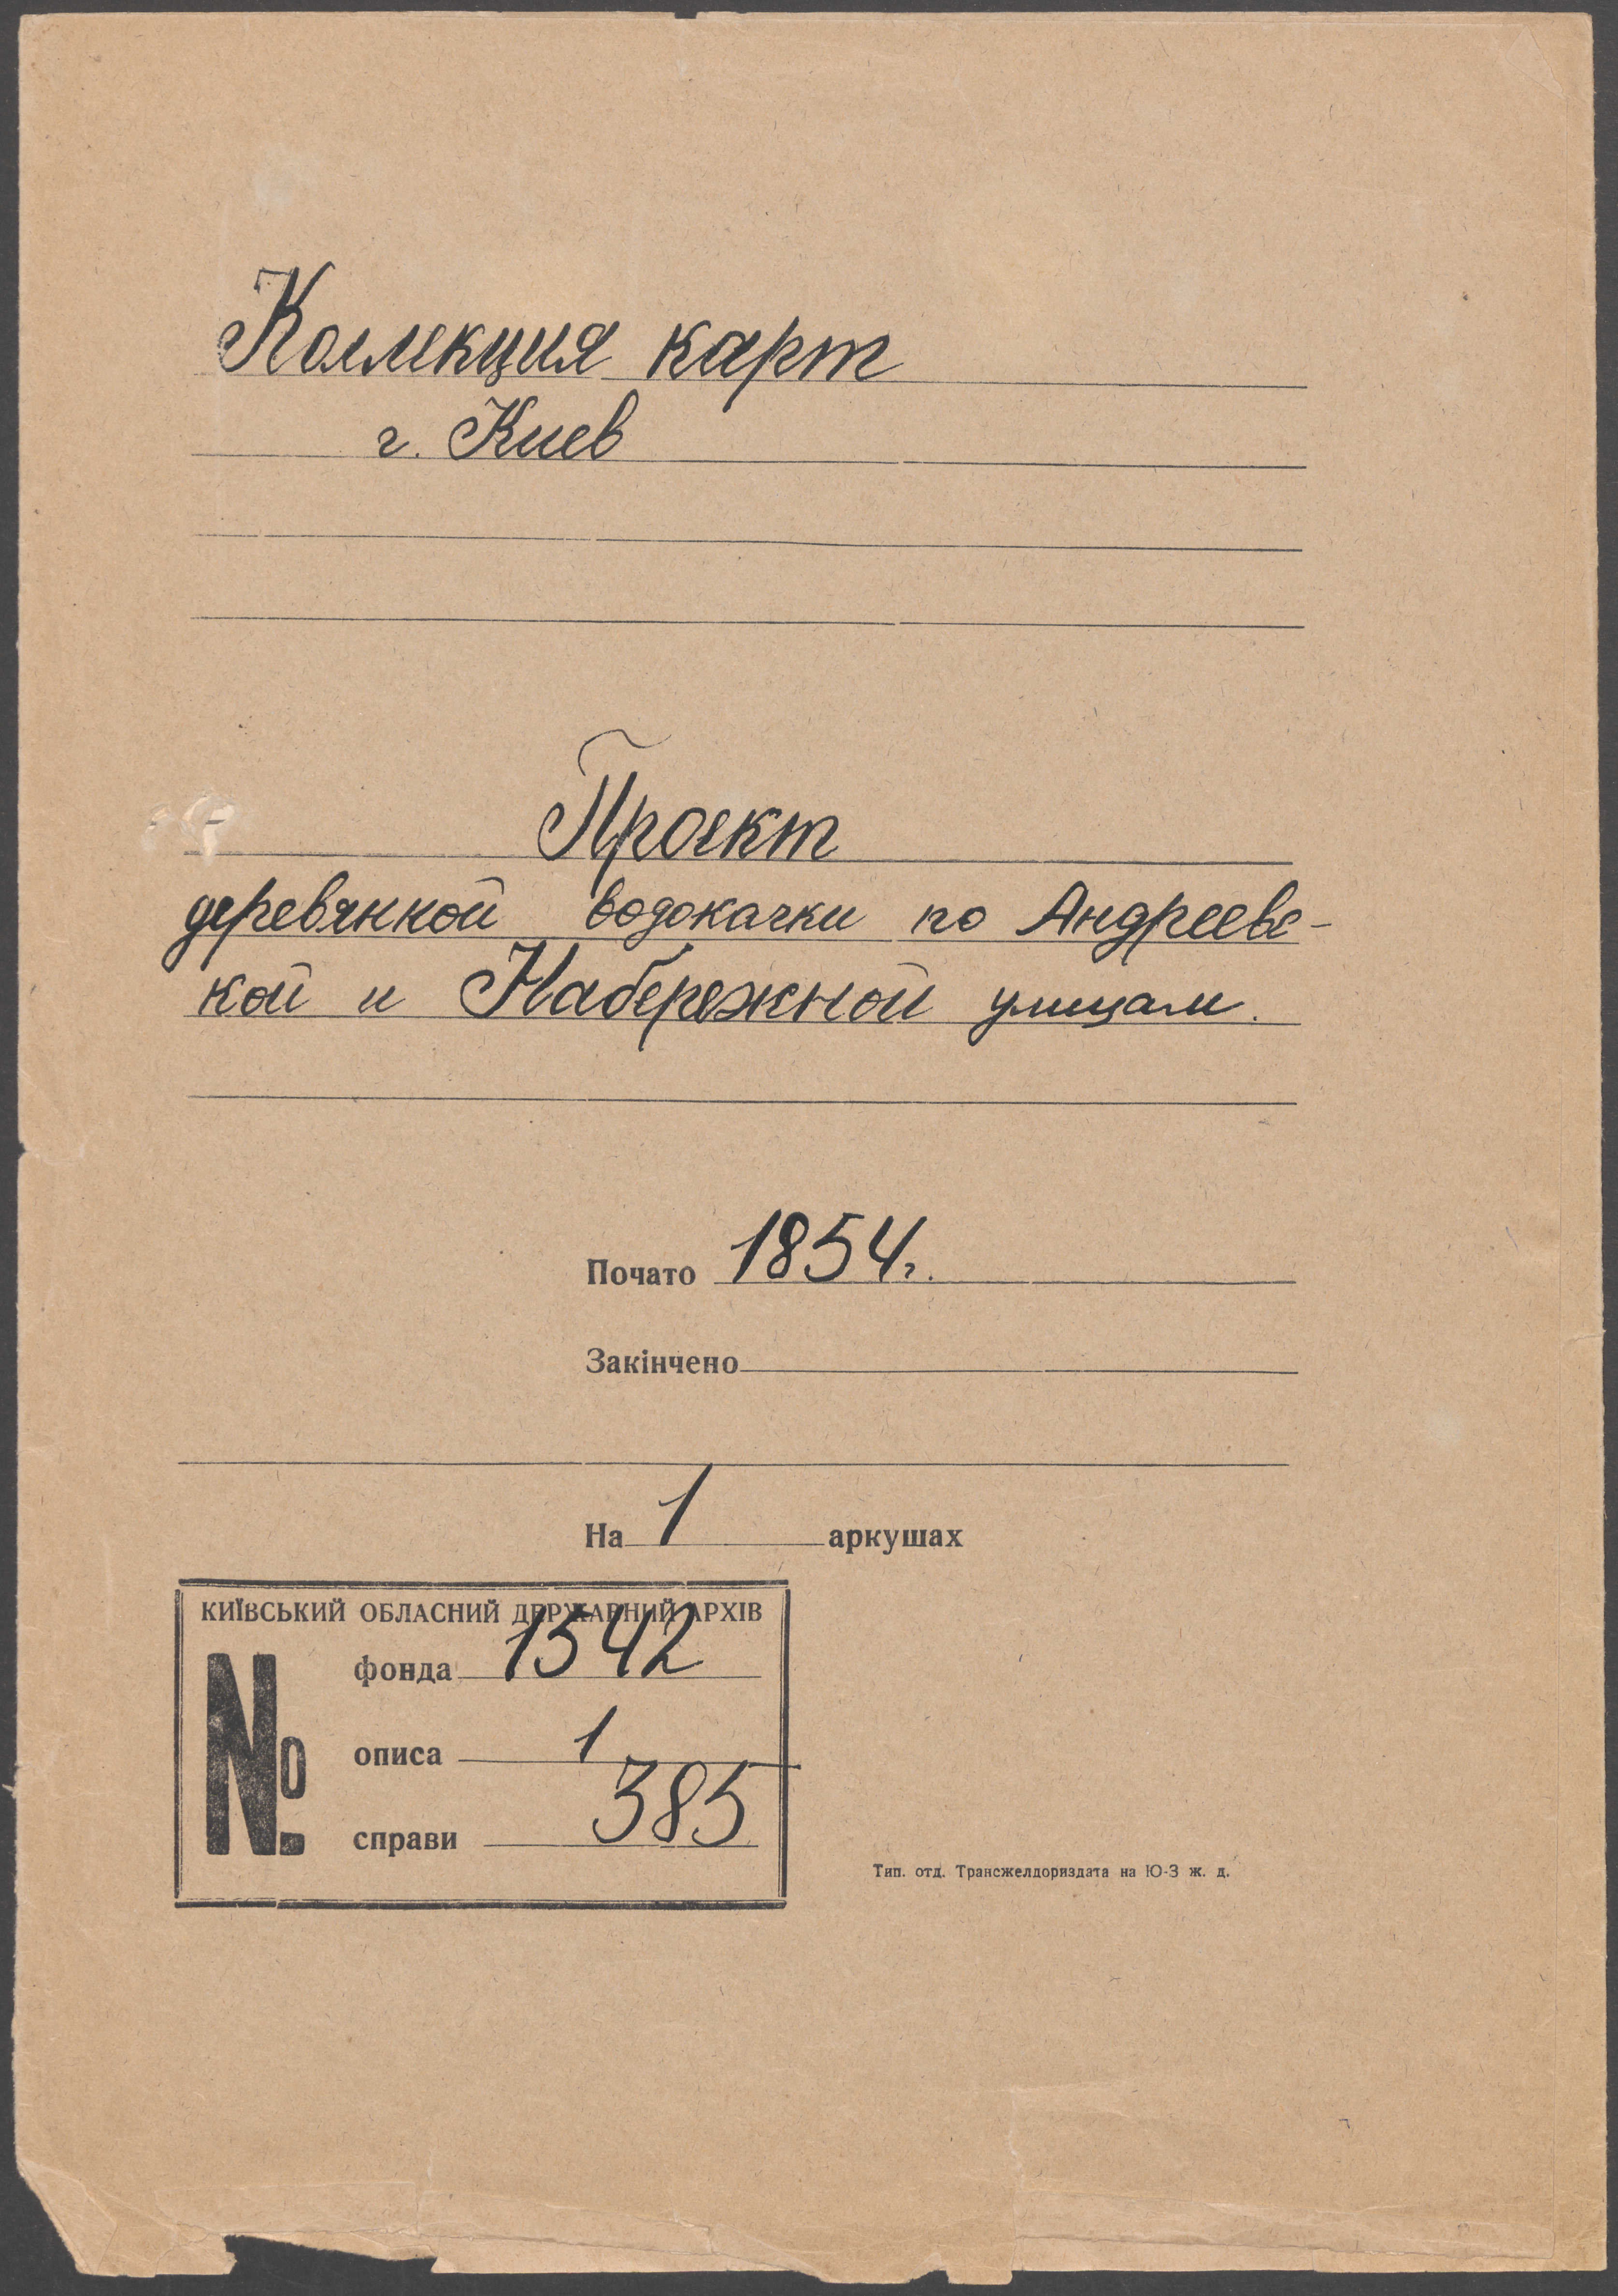 Коллекция карт
г. Киев
Проект
деревянной водокачки по Андреевс-
кой и Набережной улицам.
Почато 1854 г.
Закінчено
На 1 аркушах
КИЇВСЬКИЙ ОБЛАСНИЙ ДЕРЖАВНИЙ АРХІВ
№
фонда 1542
описа 1
справи 385
Тип. отд. Трансжелдориздата на Ю-З ж. д.